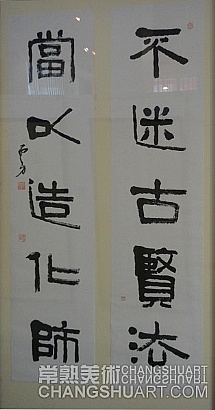 不迷古賢法
當以造化師
常熟美術
CHANGSHUART